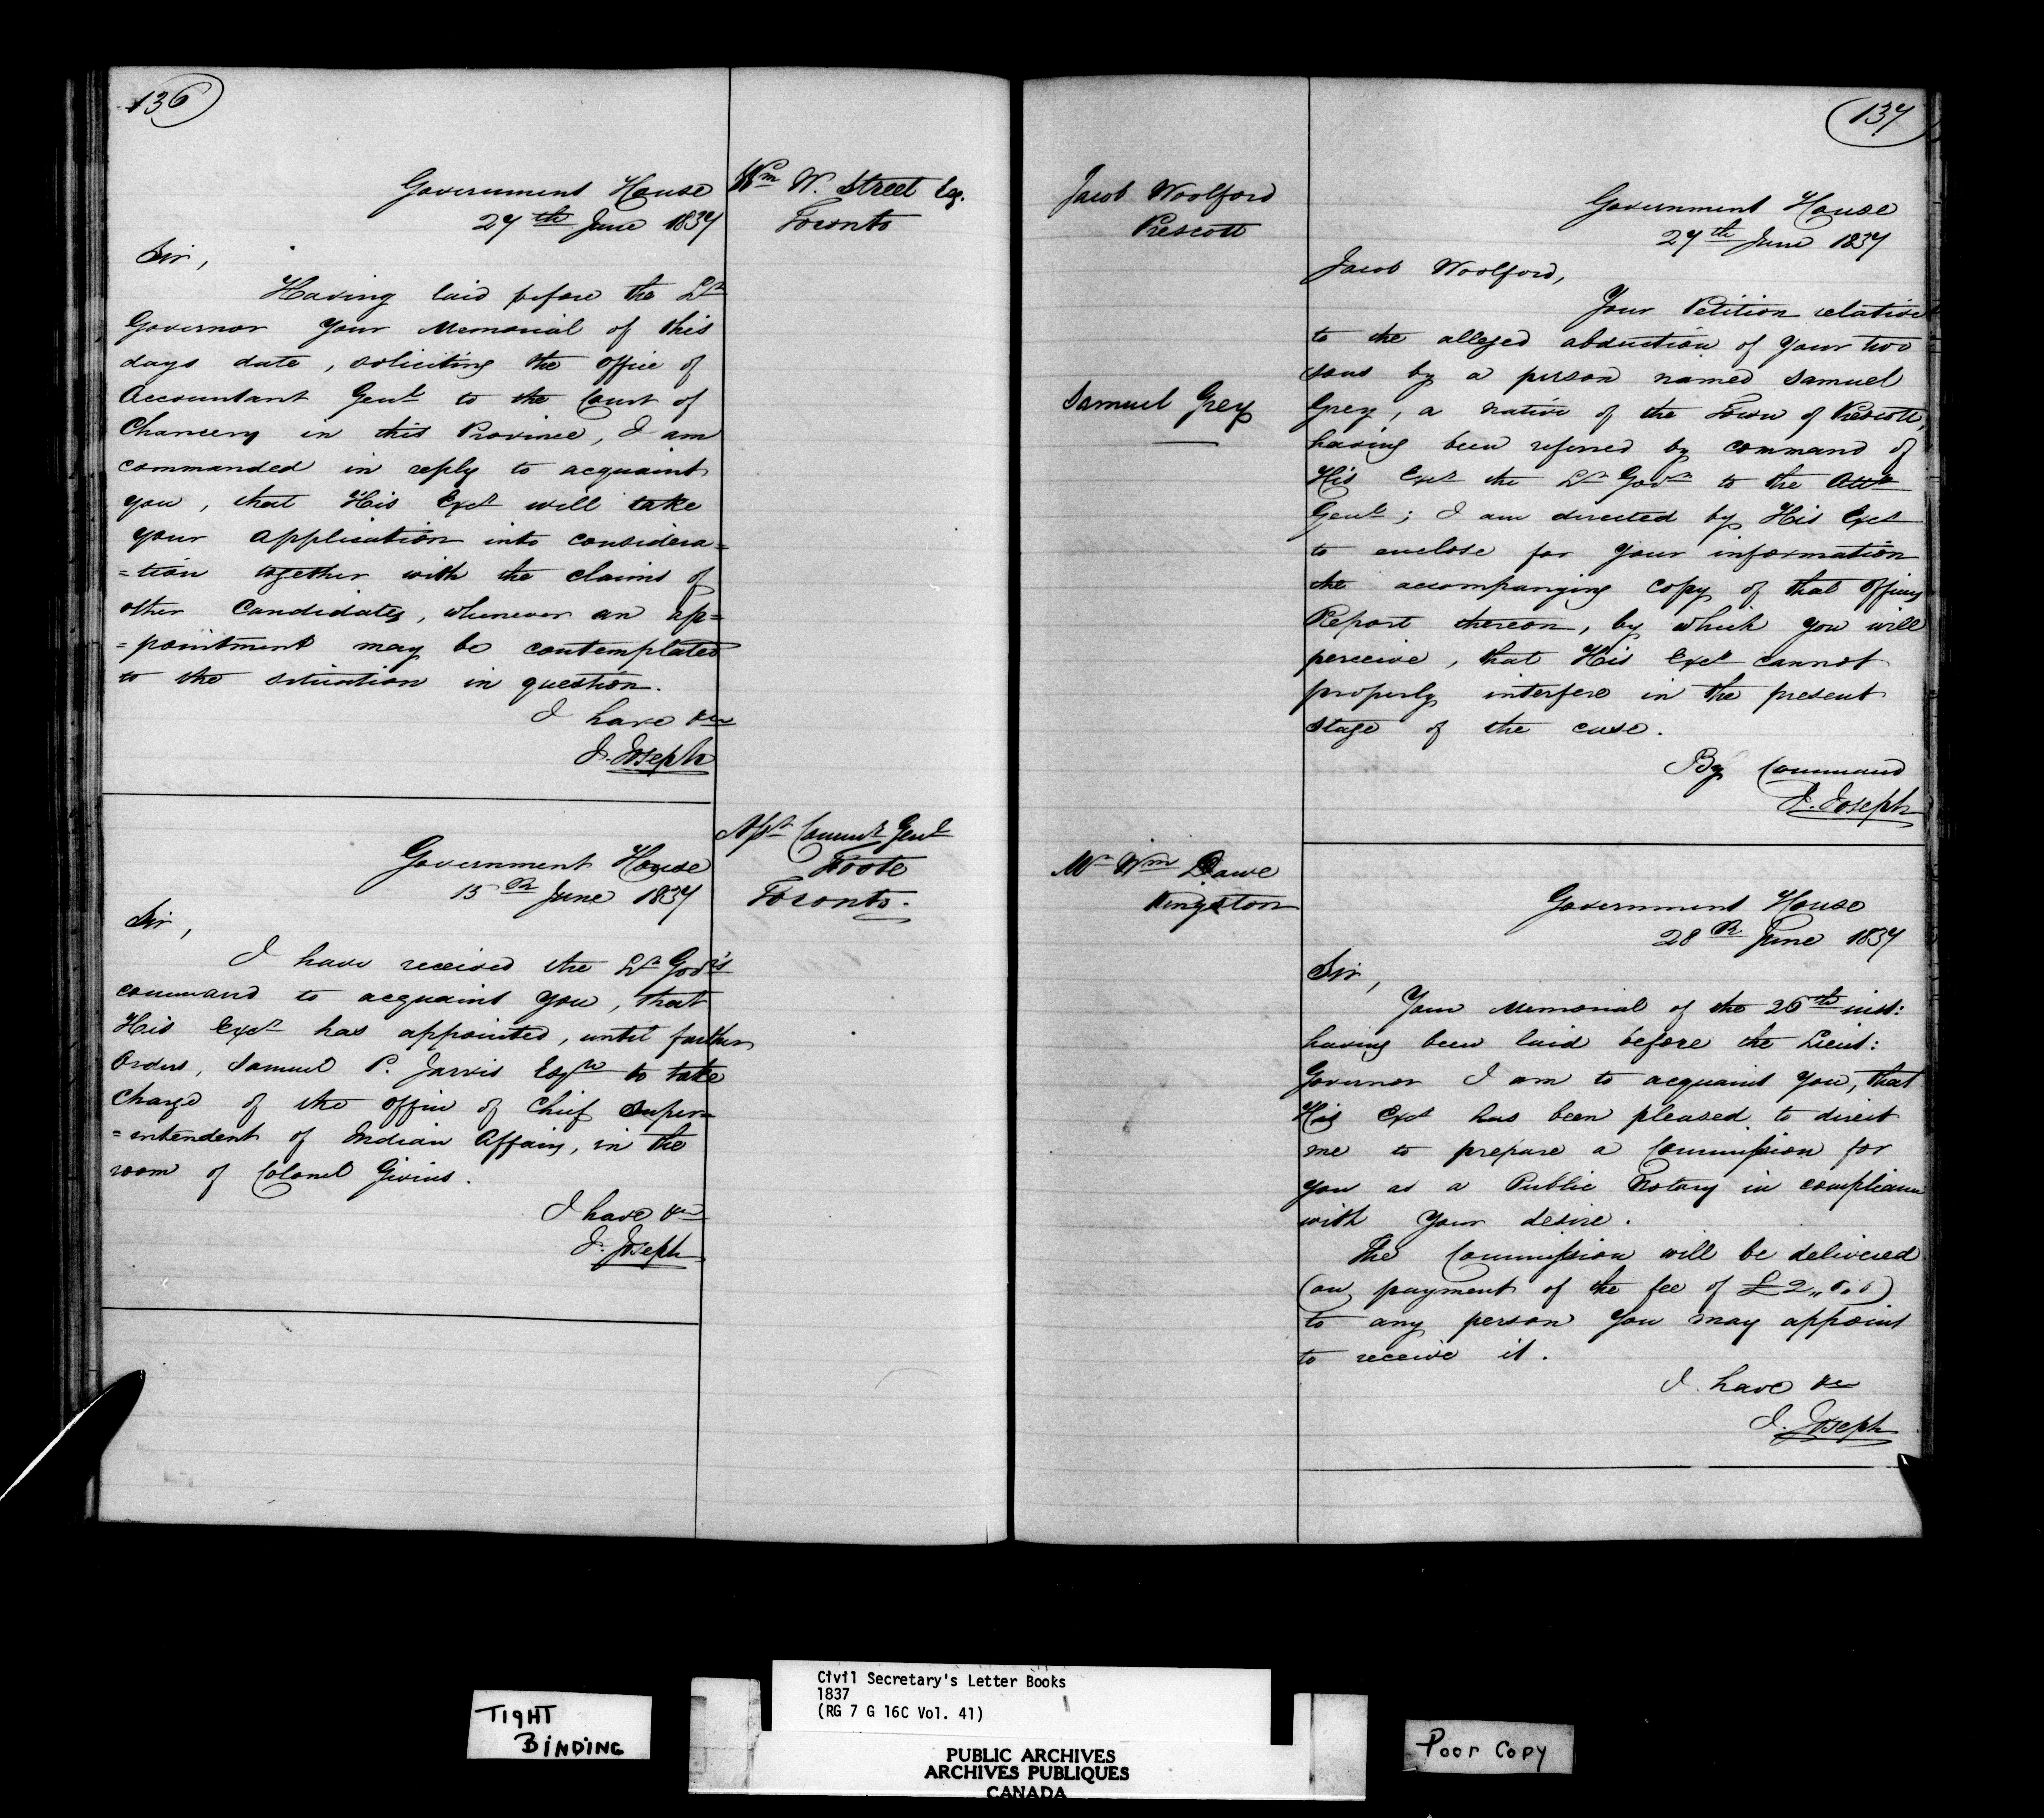 136
Wm W. Street Esq.
Toronto
Government House
27th June 1837
Sir,
Having laid before the Lt
Governor your Memorial of this
days date, soliciting the office of
Accountant Genl to the Court of
Chancery in this Province, I am
commanded in reply to acquaint
you, that His Excy will take
your application into considera=
=tion together with the claims of
other Candidates, whenever an ap=
=pointment may be contemplated
to the situation in question.
I have &c
J. Joseph
Asst Commy Genl
Foote
Toronto.
Government House
15th June 1837
Sir,
I have received the Lt Govr's
command to acquaint you, that
His Excy has appointed, until further
Orders, Samuel P. Jarvis Esqre to take
charge of the office of Chief Super=
=intendent of Indian Affairs, in the
room of Colonel Givins.
I have &c
J. Joseph
137
Jacob Woolford
Prescott
Government House
27th June 1837
Jacob Woolford,
Your Petition relative
to the alleged abduction of your two
sons by a person named Samuel
Samuel Grey
Grey, a native of the Town of Prescott,
having been referred by command of
His Excy the Lt Govr to the Atty
Genl; I am directed by His Excy
to enclose for your information
the accompanying copy of that officers
Report thereon, by which you will
perceive, that His Excy cannot
properly interfere in the present
stage of the case.
By Command
J. Joseph
Mr Wm Dawe
Kingston
Government House
28th June 1837
Sir,
Your Memorial of the 26th inst:
having been laid before the Lieut:
Governor I am to acquaint you, that
His Excy has been pleased to direct
me to prepare a Commission for
you as a Public Notary in compliance
with your desire.
The Commission will be delivered
(on payment of the fee of £2,,0,0)
to any person you may appoint
to receive it.
I have &c
J. Joseph
TIGHT
BINDING
Civil Secretary's Letter Books
1837
(RG 7 G 16C Vol. 41)
PUBLIC ARCHIVES
ARCHIVES PUBLIQUES
CANADA
Poor Copy